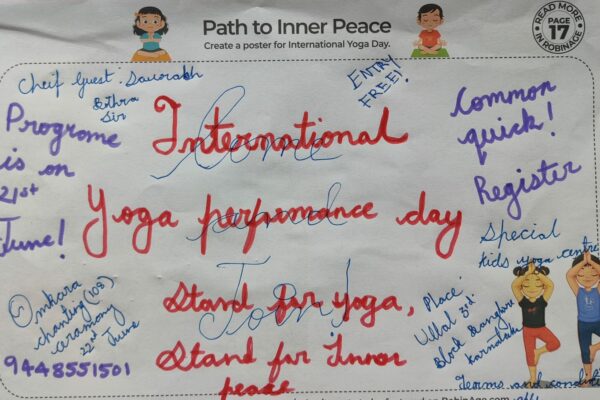 Path to Inner Peace
Create a poster for International Yoga Day.
READ MORE
PAGE
17
IN ROBINAGE
Cheif Guest. Saurabh
Bothra
Sir
ENTRY
FREE!
Programe
is on
21st
June!
International
Yoga performance day
Stand for yoga,
Stand for Innor
peace
Come
and
Join!
Common
quick!
Register
Special
kids yoga centre
Place
Ullal 3rd
Block Banglore
Karnataka
Omkara
chanting (108)
ceramony
22nd June
9448551501
Terms and conditi